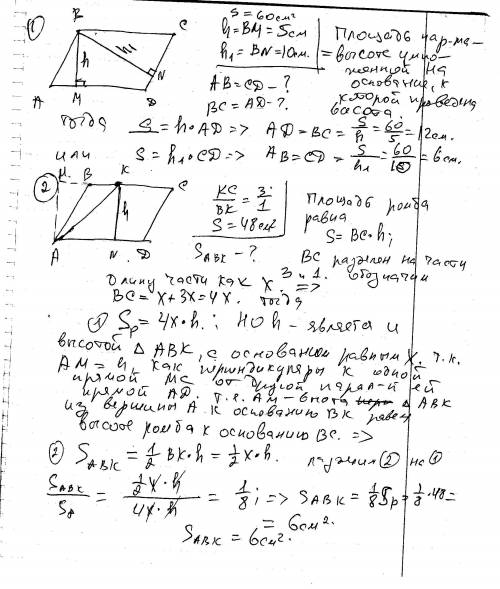 ① B C
S = 60см²
h = BM = 5см
h₁ = BN = 10см.
AB = CD – ?
BC = AD – ?
Площадь пар-ма =
= высоте умно-
женной на
основание, к
которой проведена
высота.
h h₁ N
A M D
тогда S = h·AD => AD = BC = S/h = 60/5 = 12см.
или S = h₁·CD => AB = CD = S/h₁ = 60/10 = 6см.
② M B K C
h
A N D
KC/BK = 3/1
S = 48см²
S_ABK – ?
Площадь ромба
равна
S = BC·h;
BC разделен на части
как 3 и 1. обозначим
длину части X. =>
BC = x + 3x = 4x. тогда
① Sр = 4x·h. Но h – является и
высотой △ ABK, с основанием равным X. т.к.
AM = h, как перпендикуляры к одной
прямой MC от другой парал-й ей
прямой AD. т.е. AM – высота △ ABK
из вершины A к основанию BK равен
высоте ромба к основанию BC. =>
② S_ABK = ½ BK·h = ½ x·h. ② на ①
S_ABK/Sр = ½ x·h / 4x·h = 1/8; => S_ABK = 1/8 Sр = 1/8·48 =
= 6см².
S_ABK = 6см².